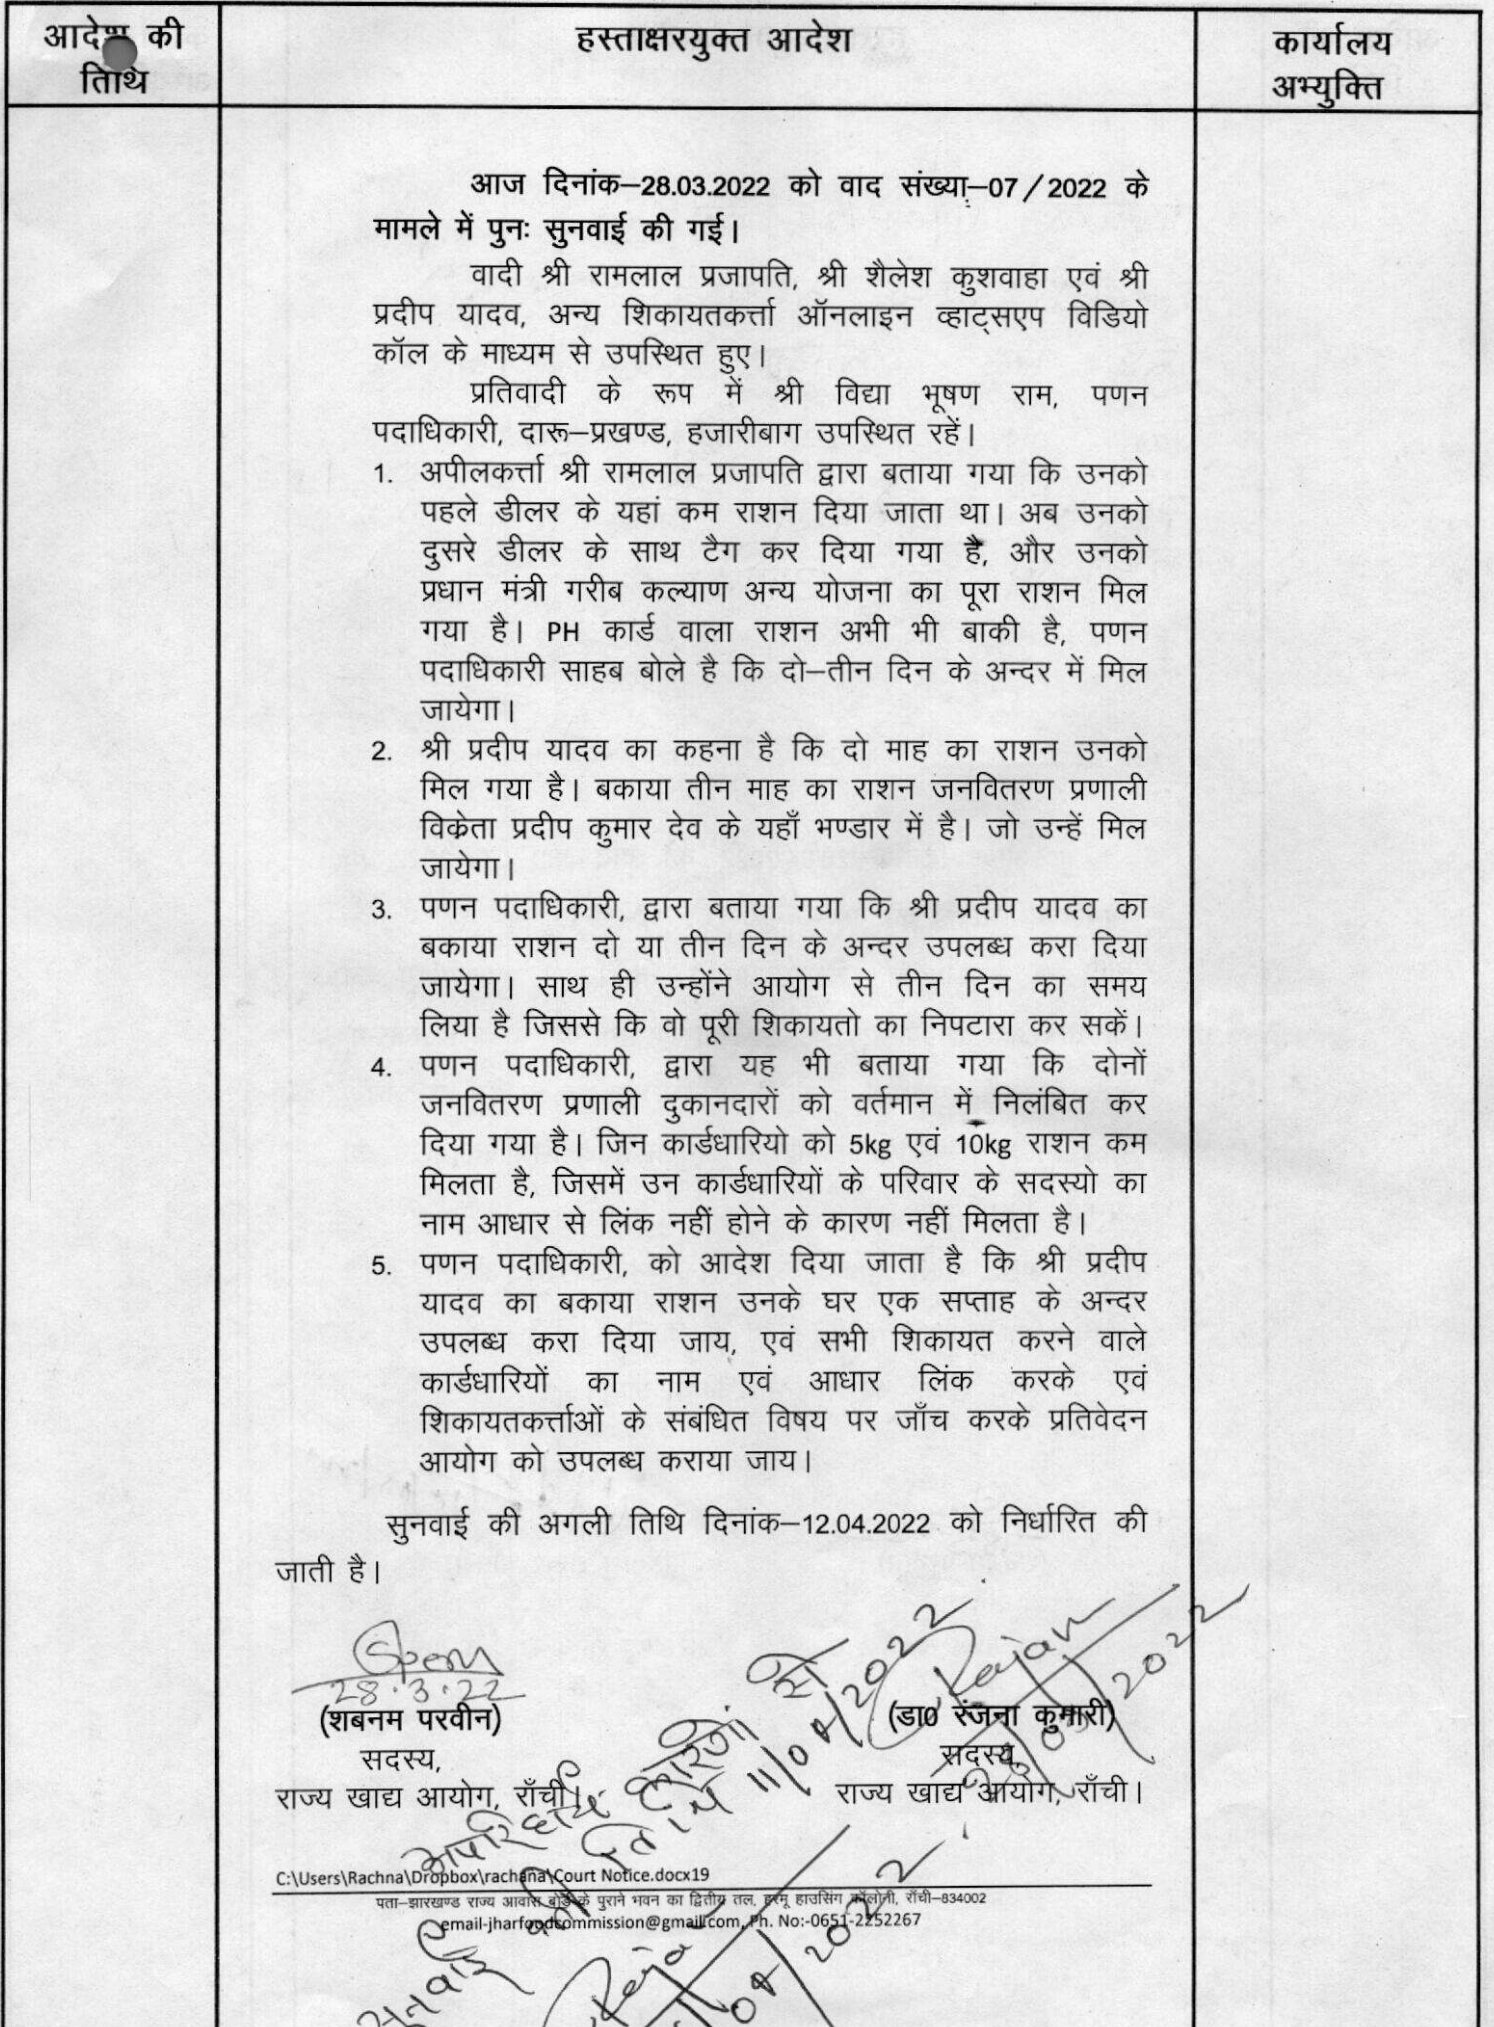 आदेश की
तिथि
हस्ताक्षरयुक्त आदेश
कार्यालय
अभ्युक्ति
आज दिनांक–28.03.2022 को वाद संख्या–07/2022 के
मामले में पुनः सुनवाई की गई।
वादी श्री रामलाल प्रजापति, श्री शैलेश कुशवाहा एवं श्री
प्रदीप यादव, अन्य शिकायतकर्त्ता ऑनलाइन व्हाट्सएप विडियो
कॉल के माध्यम से उपस्थित हुए।
प्रतिवादी के रूप में श्री विद्या भूषण राम, पणन
पदाधिकारी, दारू–प्रखण्ड, हजारीबाग उपस्थित रहें।
1. अपीलकर्त्ता श्री रामलाल प्रजापति द्वारा बताया गया कि उनको
पहले डीलर के यहां कम राशन दिया जाता था। अब उनको
दुसरे डीलर के साथ टैग कर दिया गया है, और उनको
प्रधान मंत्री गरीब कल्याण अन्य योजना का पूरा राशन मिल
गया है। PH कार्ड वाला राशन अभी भी बाकी है, पणन
पदाधिकारी साहब बोले है कि दो–तीन दिन के अन्दर में मिल
जायेगा।
2. श्री प्रदीप यादव का कहना है कि दो माह का राशन उनको
मिल गया है। बकाया तीन माह का राशन जनवितरण प्रणाली
विक्रेता प्रदीप कुमार देव के यहाँ भण्डार में है। जो उन्हें मिल
जायेगा।
3. पणन पदाधिकारी, द्वारा बताया गया कि श्री प्रदीप यादव का
बकाया राशन दो या तीन दिन के अन्दर उपलब्ध करा दिया
जायेगा। साथ ही उन्होंने आयोग से तीन दिन का समय
लिया है जिससे कि वो पूरी शिकायतो का निपटारा कर सकें।
4. पणन पदाधिकारी, द्वारा यह भी बताया गया कि दोनों
जनवितरण प्रणाली दुकानदारों को वर्तमान में निलंबित कर
दिया गया है। जिन कार्डधारियो को 5kg एवं 10kg राशन कम
मिलता है, जिसमें उन कार्डधारियों के परिवार के सदस्यो का
नाम आधार से लिंक नहीं होने के कारण नहीं मिलता है।
5. पणन पदाधिकारी, को आदेश दिया जाता है कि श्री प्रदीप
यादव का बकाया राशन उनके घर एक सप्ताह के अन्दर
उपलब्ध करा दिया जाय, एवं सभी शिकायत करने वाले
कार्डधारियों का नाम एवं आधार लिंक करके एवं
शिकायतकर्त्ताओं के संबंधित विषय पर जाँच करके प्रतिवेदन
आयोग को उपलब्ध कराया जाय।
सुनवाई की अगली तिथि दिनांक–12.04.2022 को निर्धारित की
जाती है।
28.3.22
(शबनम परवीन)
सदस्य,
राज्य खाद्य आयोग, राँची।
(डा0 रंजना कुमारी)
सदस्य,
राज्य खाद्य आयोग, राँची।
अपरिहार्य कारणों से
सुनवाई की तिथि 11/04/2022
C:\Users\Rachna\Dropbox\rachana\Court Notice.docx19
पता–झारखण्ड राज्य आवास बोर्ड के पुराने भवन का द्वितीय तल, हरमू हाउसिंग कॉलोनी, राँची–834002
email-jharfoodcommission@gmail.com, Ph. No:-0651-2252267